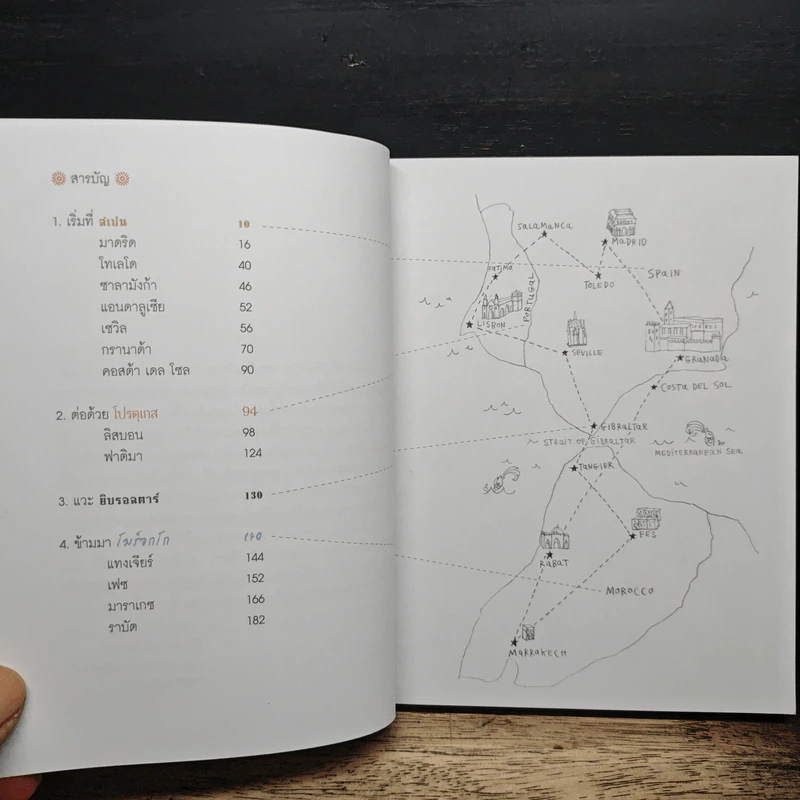 สารบัญ
1. เริ่มที่ สเปน 10
มาดริด 16
โทเลโด 40
ซาลามังก้า 46
แอนดาลูเซีย 52
เซวิล 56
กรานาด้า 70
คอสต้า เดล โซล 90
2. ต่อด้วย โปรตุเกส 94
ลิสบอน 98
ฟาติมา 124
3. แวะ ยิบรอลตาร์ 130
4. ข้ามมา โมร็อกโก 140
แทงเจียร์ 144
เฟซ 152
มาราเกซ 166
ราบัต 182
SALAMANCA
MADRID
FATIMA
TOLEDO
SPAIN
PORTUGAL
LISBON
SEVILLE
GRANADA
COSTA DEL SOL
GIBRALTAR
STRAIT OF GIBRALTAR
MEDITERRANEAN SEA
TANGIER
FES
RABAT
MOROCCO
MARRAKECH